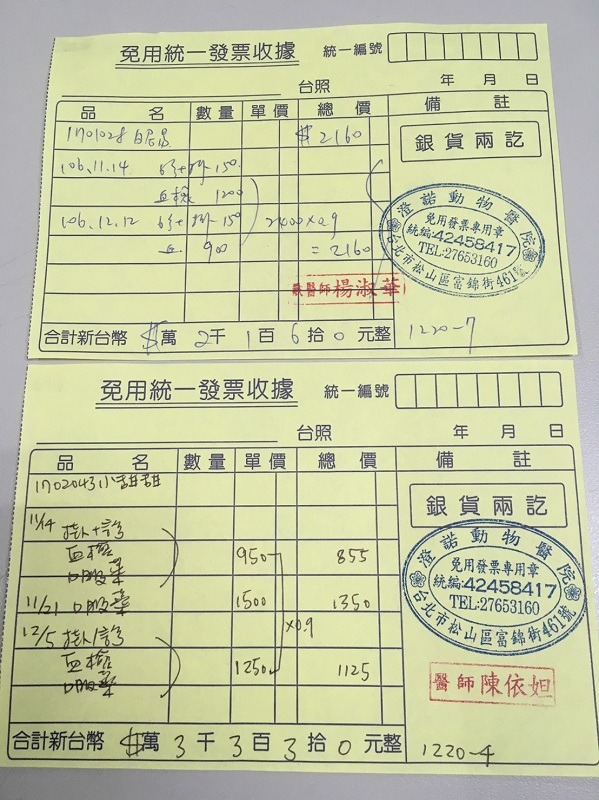 免用統一發票收據
統一編號
台照 年 月 日
品 名 數量 單價 總 價 備 註
1701028 $2160
銀貨兩訖
106.11.14 150
血檢 1200
106.12.12 150 2400×0.9
血 900 =2160
澄諾動物醫院
免用發票專用章
統編:42458417
TEL:27653160
台北市松山區富錦街461號
獸醫師 楊淑華
合計新台幣 $萬 2千 1百 6拾 0元整
1220-7
免用統一發票收據
統一編號
台照 年 月 日
品 名 數量 單價 總 價 備 註
1702043 小甜甜
銀貨兩訖
11/14 掛+診
血檢 950 855
口服藥
11/21 口服藥 1500 1350
12/5 掛/診 ×0.9
血檢 1250 1125
口服藥
澄諾動物醫院
免用發票專用章
統編:42458417
TEL:27653160
台北市松山區富錦街461號
醫師 陳依妲
合計新台幣 $萬 3千 3百 3拾 0元整
1220-4